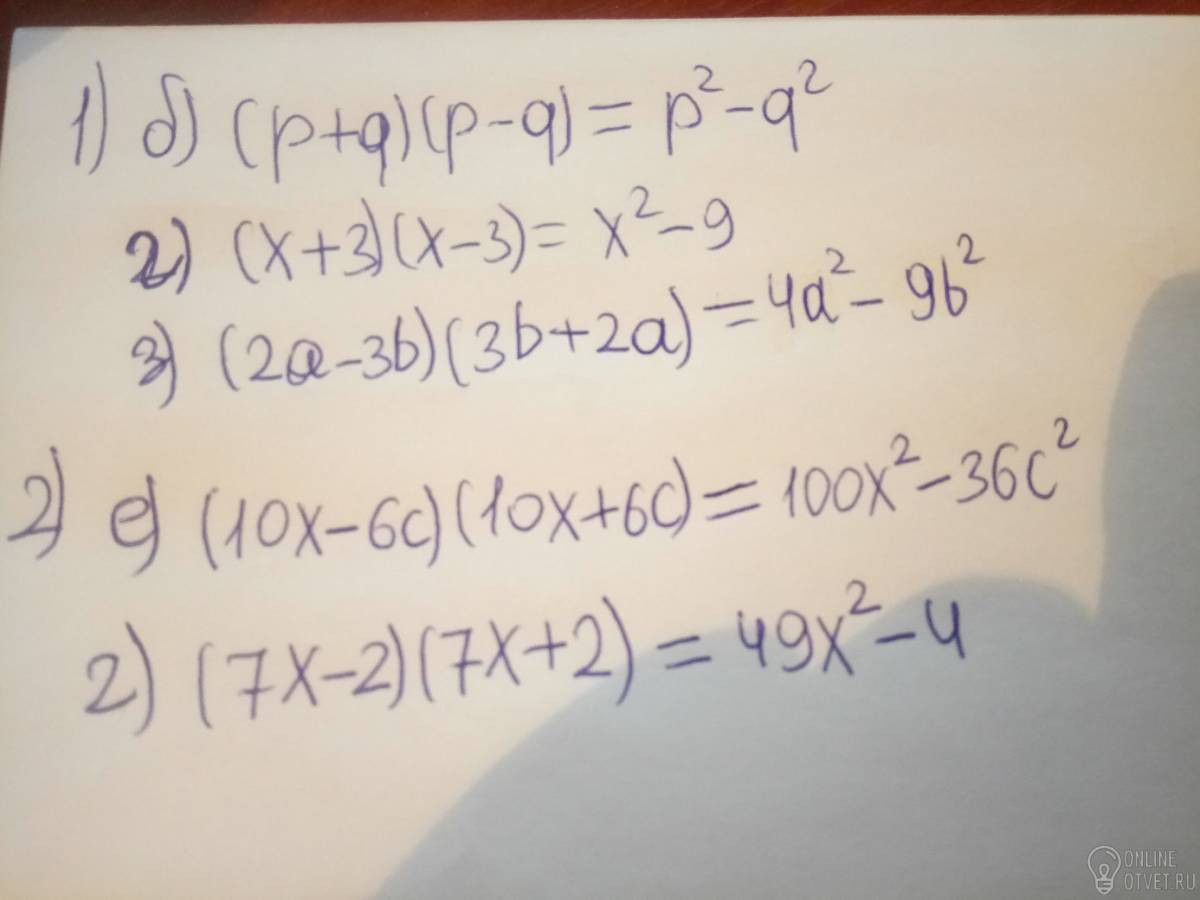 1) б) (p+q)(p-q)=p²-q²
2) (x+3)(x-3)=x²-9
3) (2a-3b)(3b+2a)=4a²-9b²
2) е) (10x-6c)(10x+6c)=100x²-36c²
2) (7x-2)(7x+2)=49x²-4
ONLINE
OTVET.RU